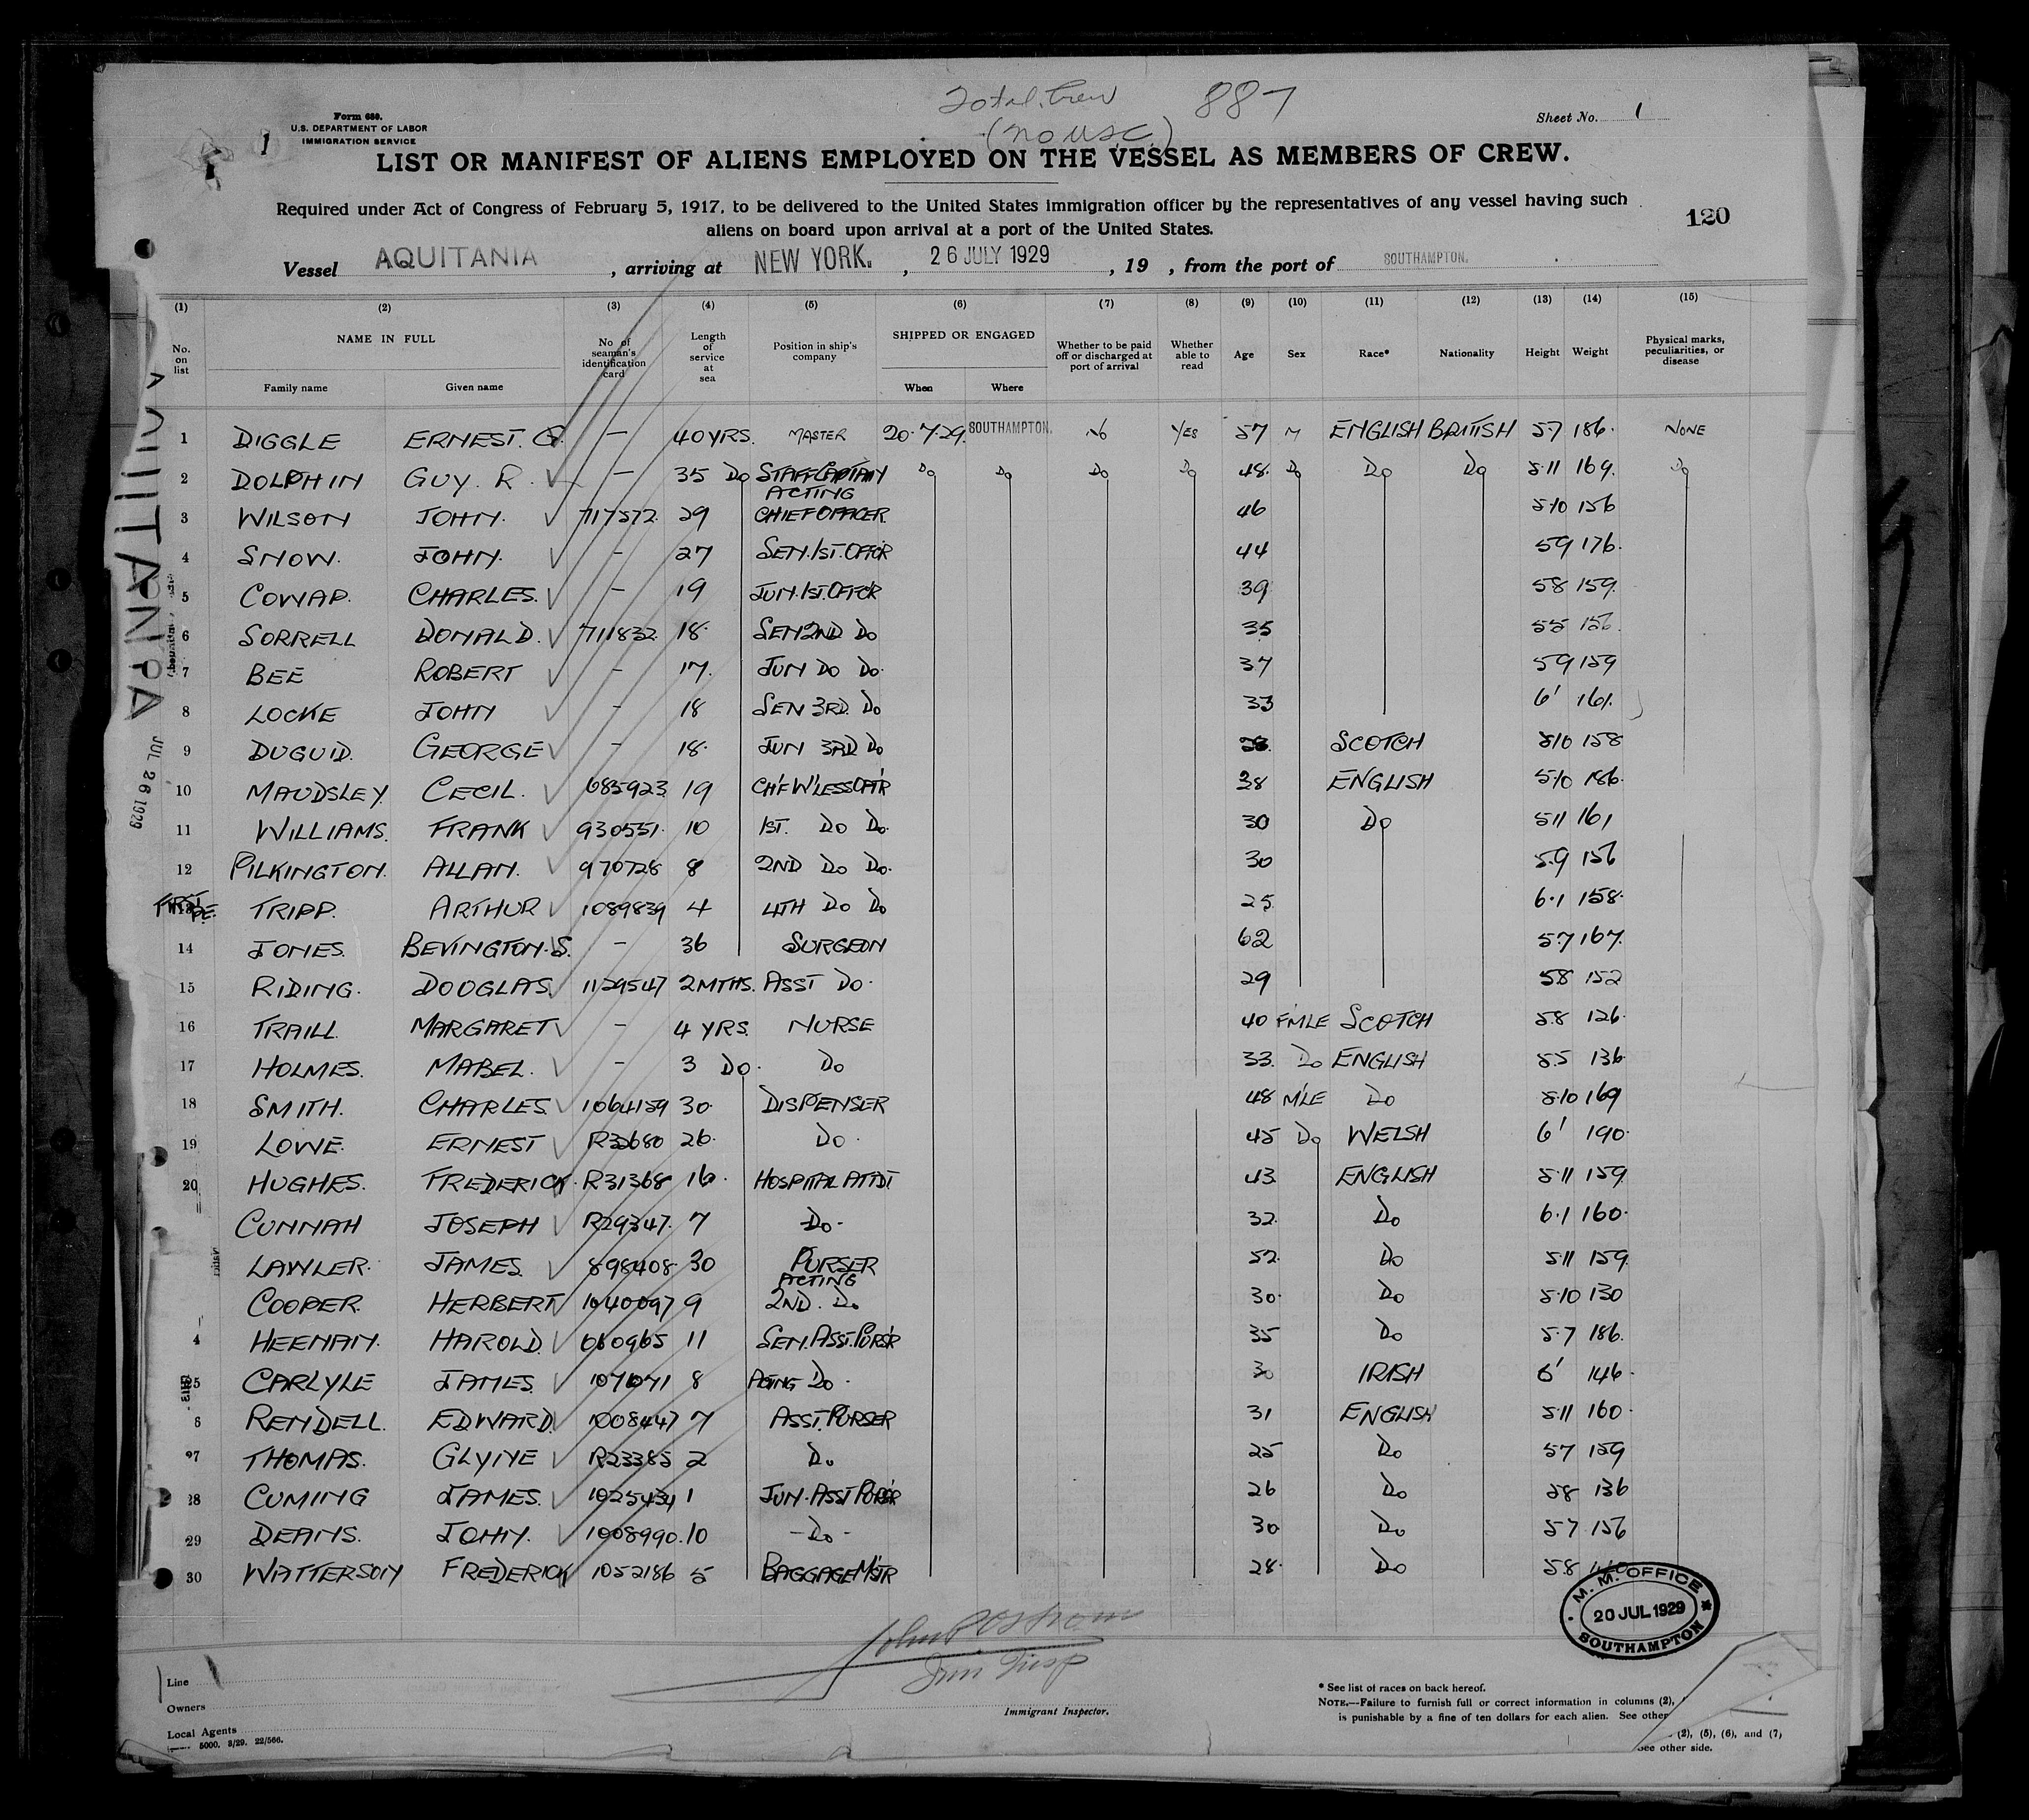 Total Crew 887
(no USC)
Form 680.
U.S. DEPARTMENT OF LABOR
IMMIGRATION SERVICE
1
Sheet No. 1
LIST OR MANIFEST OF ALIENS EMPLOYED ON THE VESSEL AS MEMBERS OF CREW.
Required under Act of Congress of February 5, 1917, to be delivered to the United States immigration officer by the representatives of any vessel having such
aliens on board upon arrival at a port of the United States.
120
Vessel AQUITANIA, arriving at NEW YORK., 26 JULY 1929, 19 , from the port of SOUTHAMPTON.
(1) (2) (3) (4) (5) (6) (7) (8) (9) (10) (11) (12) (13) (14) (15)
No. on list NAME IN FULL Family name Given name No. of seaman's identification card Length of service at sea Position in ship's company SHIPPED OR ENGAGED When Where Whether to be paid off or discharged at port of arrival Whether able to read Age Sex Race* Nationality Height Weight Physical marks, peculiarities, or disease
1 DIGGLE ERNEST. G. — 40 YRS. MASTER 20.7.29. SOUTHAMPTON. No YES 57 M ENGLISH BRITISH 5.7 186. NONE
2 DOLPHIN GUY. R. — 35 Do STAFF CAPTAIN Do Do Do Do 48. Do Do Do 5.11 169. Do
3 WILSON JOHN. 717572. 29 ACTING CHIEF OFFICER 46 5.10 156
4 SNOW. JOHN. - 27 SEN. 1ST. OFFCR 44 5.9 176.
5 COWAP. CHARLES. - 19 JUN. 1ST. OFFCR 39 5.8 159.
6 SORRELL DONALD. 711832. 18. SEN 2ND Do 35 5.5 156.
7 BEE ROBERT - 17. JUN Do Do. 37 5.9 159
8 LOCKE JOHN - 18 SEN 3RD. Do 33 6' 161.
9 DUGUID. GEORGE - 18. JUN 3RD Do 28. SCOTCH 5.10 158
10 MAUDSLEY. CECIL. 685923. 19 CH'F W'LESS OFF'R 38 ENGLISH 5.10 186.
11 WILLIAMS. FRANK 930551. 10 1ST. Do Do. 30 Do 5.11 161
12 PILKINGTON. ALLAN. 970728 8 2ND Do Do. 30 5.9 156
TRIPP. ARTHUR 1089839 4 4TH Do Do 25 6.1 158.
14 JONES. BEVINGTON. S. - 36 SURGEON 62 5.7 167.
15 RIDING. DOUGLAS. 1129547 2 MTHS. ASST Do. 29 5.8 152
16 TRAILL. MARGARET - 4 YRS. NURSE 40 F'MLE SCOTCH 5.8 126.
17 HOLMES. MABEL. - 3 Do. Do 33. Do ENGLISH 5.5 136.
18 SMITH. CHARLES 1064159 30. DISPENSER 48 M'LE Do 5.10 169
19 LOWE. ERNEST R32680 26. Do. 45 Do WELSH 6' 190.
20 HUGHES. FREDERICK. R31368 16. HOSPITAL ATTDT 43 ENGLISH 5.11 159
CUNNAH JOSEPH R29347. 7 -Do- 32. Do 6.1 160.
LAWLER. JAMES. 898408 30 PURSER 52. Do 5.11 159.
COOPER. HERBERT 1040097 9 ACTING 2ND. Do 30. Do 5.10 130
4 HEENAN. HAROLD. 060965 11 SEN. ASST. PURS'R 35 Do 5.7 186.
25 CARLYLE JAMES. 1071071 8 ACTING Do. 30 IRISH 6' 146.
6 RENDELL. EDWARD. 1008447 7 ASST. PURSER 31 ENGLISH 5.11 160.
27 THOMAS. GLYNE R23385 2 Do 25 Do 5.7 159
28 CUMING JAMES. 1025434 1 JUN. ASST PURS'R 26 Do 5.8 136
29 DEANS. JOHN. 1008990. 10 -Do- 30. Do 5.7 156
30 WATTERSON FREDERICK 1052186 5 BAGGAGE M'STR 28. Do 5.8
JUL 26 1929
M. M. OFFICE
20 JUL 1929
SOUTHAMPTON
Immigrant Inspector.
Line
Owners
Local Agents
5000. 3/29. 22/566.
* See list of races on back hereof.
NOTE.—Failure to furnish full or correct information in columns (2),
is punishable by a fine of ten dollars for each alien. See other
(2), (5), (6), and (7),
See other side.